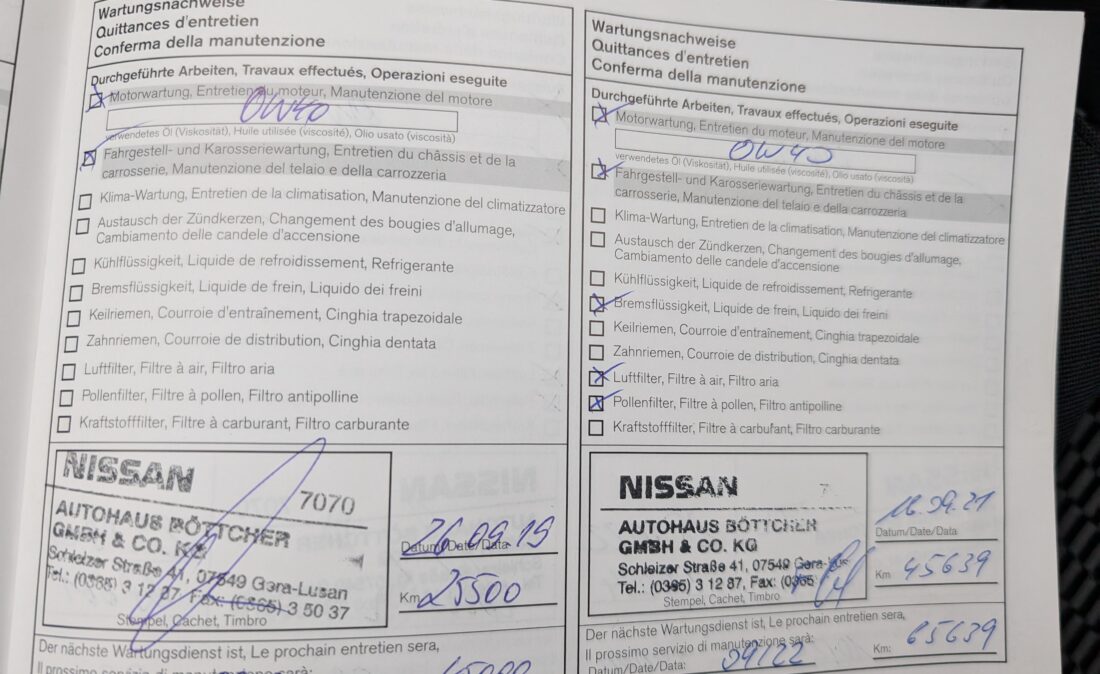 Wartungsnachweise
Quittances d'entretien
Conferma della manutenzione
Durchgeführte Arbeiten, Travaux effectués, Operazioni eseguite
Motorwartung, Entretien du moteur, Manutenzione del motore
0W40
verwendetes Öl (Viskosität), Huile utilisée (viscosité), Olio usato (viscosità)
Fahrgestell- und Karosseriewartung, Entretien du châssis et de la
carrosserie, Manutenzione del telaio e della carrozzeria
Klima-Wartung, Entretien de la climatisation, Manutenzione del climatizzatore
Austausch der Zündkerzen, Changement des bougies d'allumage,
Cambiamento delle candele d'accensione
Kühlflüssigkeit, Liquide de refroidissement, Refrigerante
Bremsflüssigkeit, Liquide de frein, Liquido dei freini
Keilriemen, Courroie d'entraînement, Cinghia trapezoidale
Zahnriemen, Courroie de distribution, Cinghia dentata
Luftfilter, Filtre à air, Filtro aria
Pollenfilter, Filtre à pollen, Filtro antipolline
Kraftstofffilter, Filtre à carburant, Filtro carburante
NISSAN
7070
AUTOHAUS BÖTTCHER
GMBH & CO. KG
Schleizer Straße 41, 07549 Gera-Lusan
Tel.: (0365) 3 12 87, Fax: (0365) 3 50 37
Stempel, Cachet, Timbro
26.09.19
Datum/Date/Data
Km 25500
Der nächste Wartungsdienst ist, Le prochain entretien sera,
Il prossimo servizio di manutenzione sarà:
Wartungsnachweise
Quittances d'entretien
Conferma della manutenzione
Durchgeführte Arbeiten, Travaux effectués, Operazioni eseguite
Motorwartung, Entretien du moteur, Manutenzione del motore
0W40
verwendetes Öl (Viskosität), Huile utilisée (viscosité), Olio usato (viscosità)
Fahrgestell- und Karosseriewartung, Entretien du châssis et de la
carrosserie, Manutenzione del telaio e della carrozzeria
Klima-Wartung, Entretien de la climatisation, Manutenzione del climatizzatore
Austausch der Zündkerzen, Changement des bougies d'allumage,
Cambiamento delle candele d'accensione
Kühlflüssigkeit, Liquide de refroidissement, Refrigerante
Bremsflüssigkeit, Liquide de frein, Liquido dei freini
Keilriemen, Courroie d'entraînement, Cinghia trapezoidale
Zahnriemen, Courroie de distribution, Cinghia dentata
Luftfilter, Filtre à air, Filtro aria
Pollenfilter, Filtre à pollen, Filtro antipolline
Kraftstofffilter, Filtre à carburant, Filtro carburante
NISSAN
AUTOHAUS BÖTTCHER
GMBH & CO. KG
Schleizer Straße 41, 07549
Tel.: (0365) 3 12 87, Fax: (0365)
Stempel, Cachet, Timbro
16.09.21
Datum/Date/Data
Km 45639
Der nächste Wartungsdienst ist, Le prochain entretien sera,
Il prossimo servizio di manutenzione sarà:
Datum/Date/Data: 09/22 Km: 65639